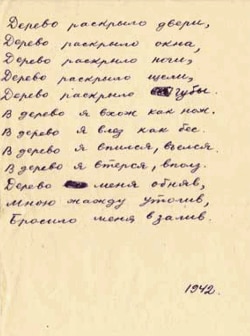 Дерево раскрыло двери,
Дерево раскрыло окна,
Дерево раскрыло ноги,
Дерево раскрыло щели,
Дерево раскрыло губы.
В дерево я вхож как нож.
В дерево я влез как бес.
В дерево я впился, въелся.
В дерево я втерся, вполз.
Дерево меня обняв,
Мною жажду утолив,
Бросило меня в залив.
1942.